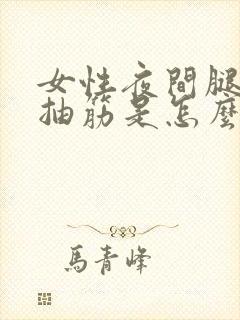 女性夜間腿
抽筋是怎麼
馬青峰